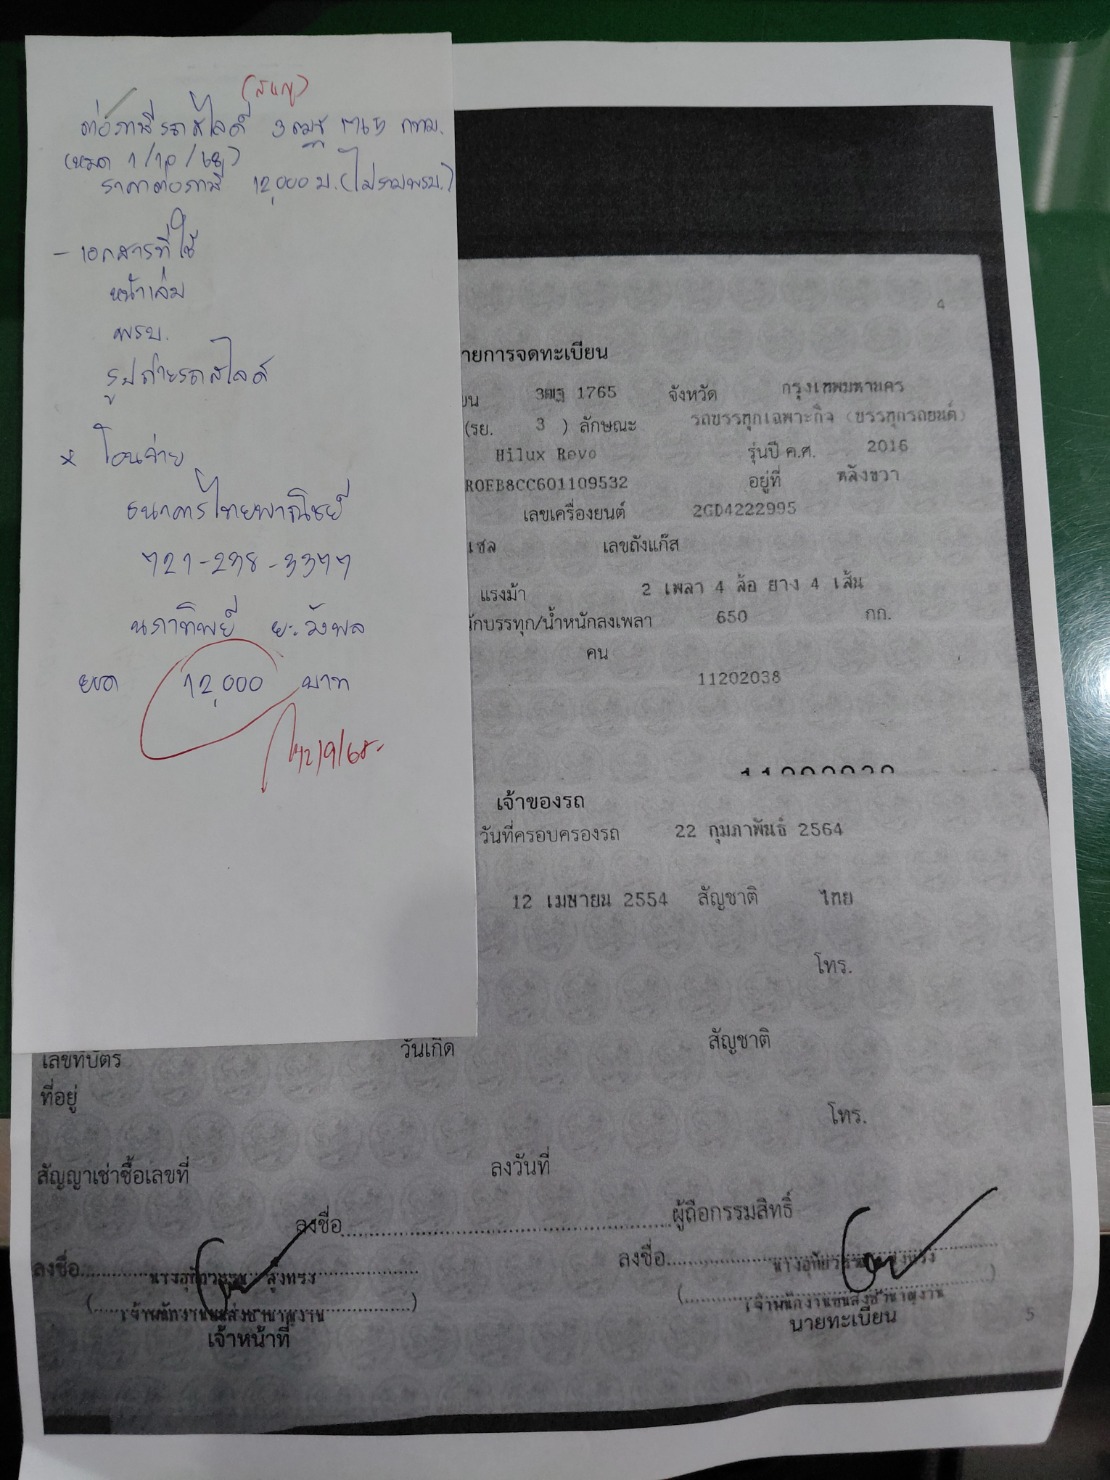 (สัญ)
ต่อภาษีรถสไลด์ 3ฒฐ 1765 กทม.
(หมด 1/10/68)
ราคาต่อภาษี 12,000 บ. (ไม่รวมพรบ.)
- เอกสารที่ใช้
หน้าเล่ม
พรบ.
รูปถ่ายรถสไลด์
* โอนจ่าย
ธนาคารไทยพาณิชย์
721-298-3377
นภาทิพย์
ยอด 12,000 บาท
12/9/68
4
ายการจดทะเบียน
ยน 3ฒฐ 1765 จังหวัด กรุงเทพมหานคร
(รย. 3 ) ลักษณะ รถบรรทุกเฉพาะกิจ (บรรทุกรถยนต์)
Hilux Revo รุ่นปี ค.ศ. 2016
R0EB8CC601109532 อยู่ที่ หลังขวา
เลขเครื่องยนต์ 2GD4222995
เซล เลขถังแก๊ส
แรงม้า 2 เพลา 4 ล้อ ยาง 4 เส้น
นักบรรทุก/น้ำหนักลงเพลา 650 กก.
คน
11202038
เจ้าของรถ
วันที่ครอบครองรถ 22 กุมภาพันธ์ 2564
12 เมษายน 2554 สัญชาติ ไทย
โทร.
เลขที่บัตร วันเกิด สัญชาติ
ที่อยู่
โทร.
สัญญาเช่าซื้อเลขที่ ลงวันที่
ลงชื่อ ผู้ถือกรรมสิทธิ์
ลงชื่อ ลงชื่อ
เจ้าพนักงานขนส่งชำนาญงาน เจ้าพนักงานขนส่งชำนาญงาน
เจ้าหน้าที่ นายทะเบียน
5